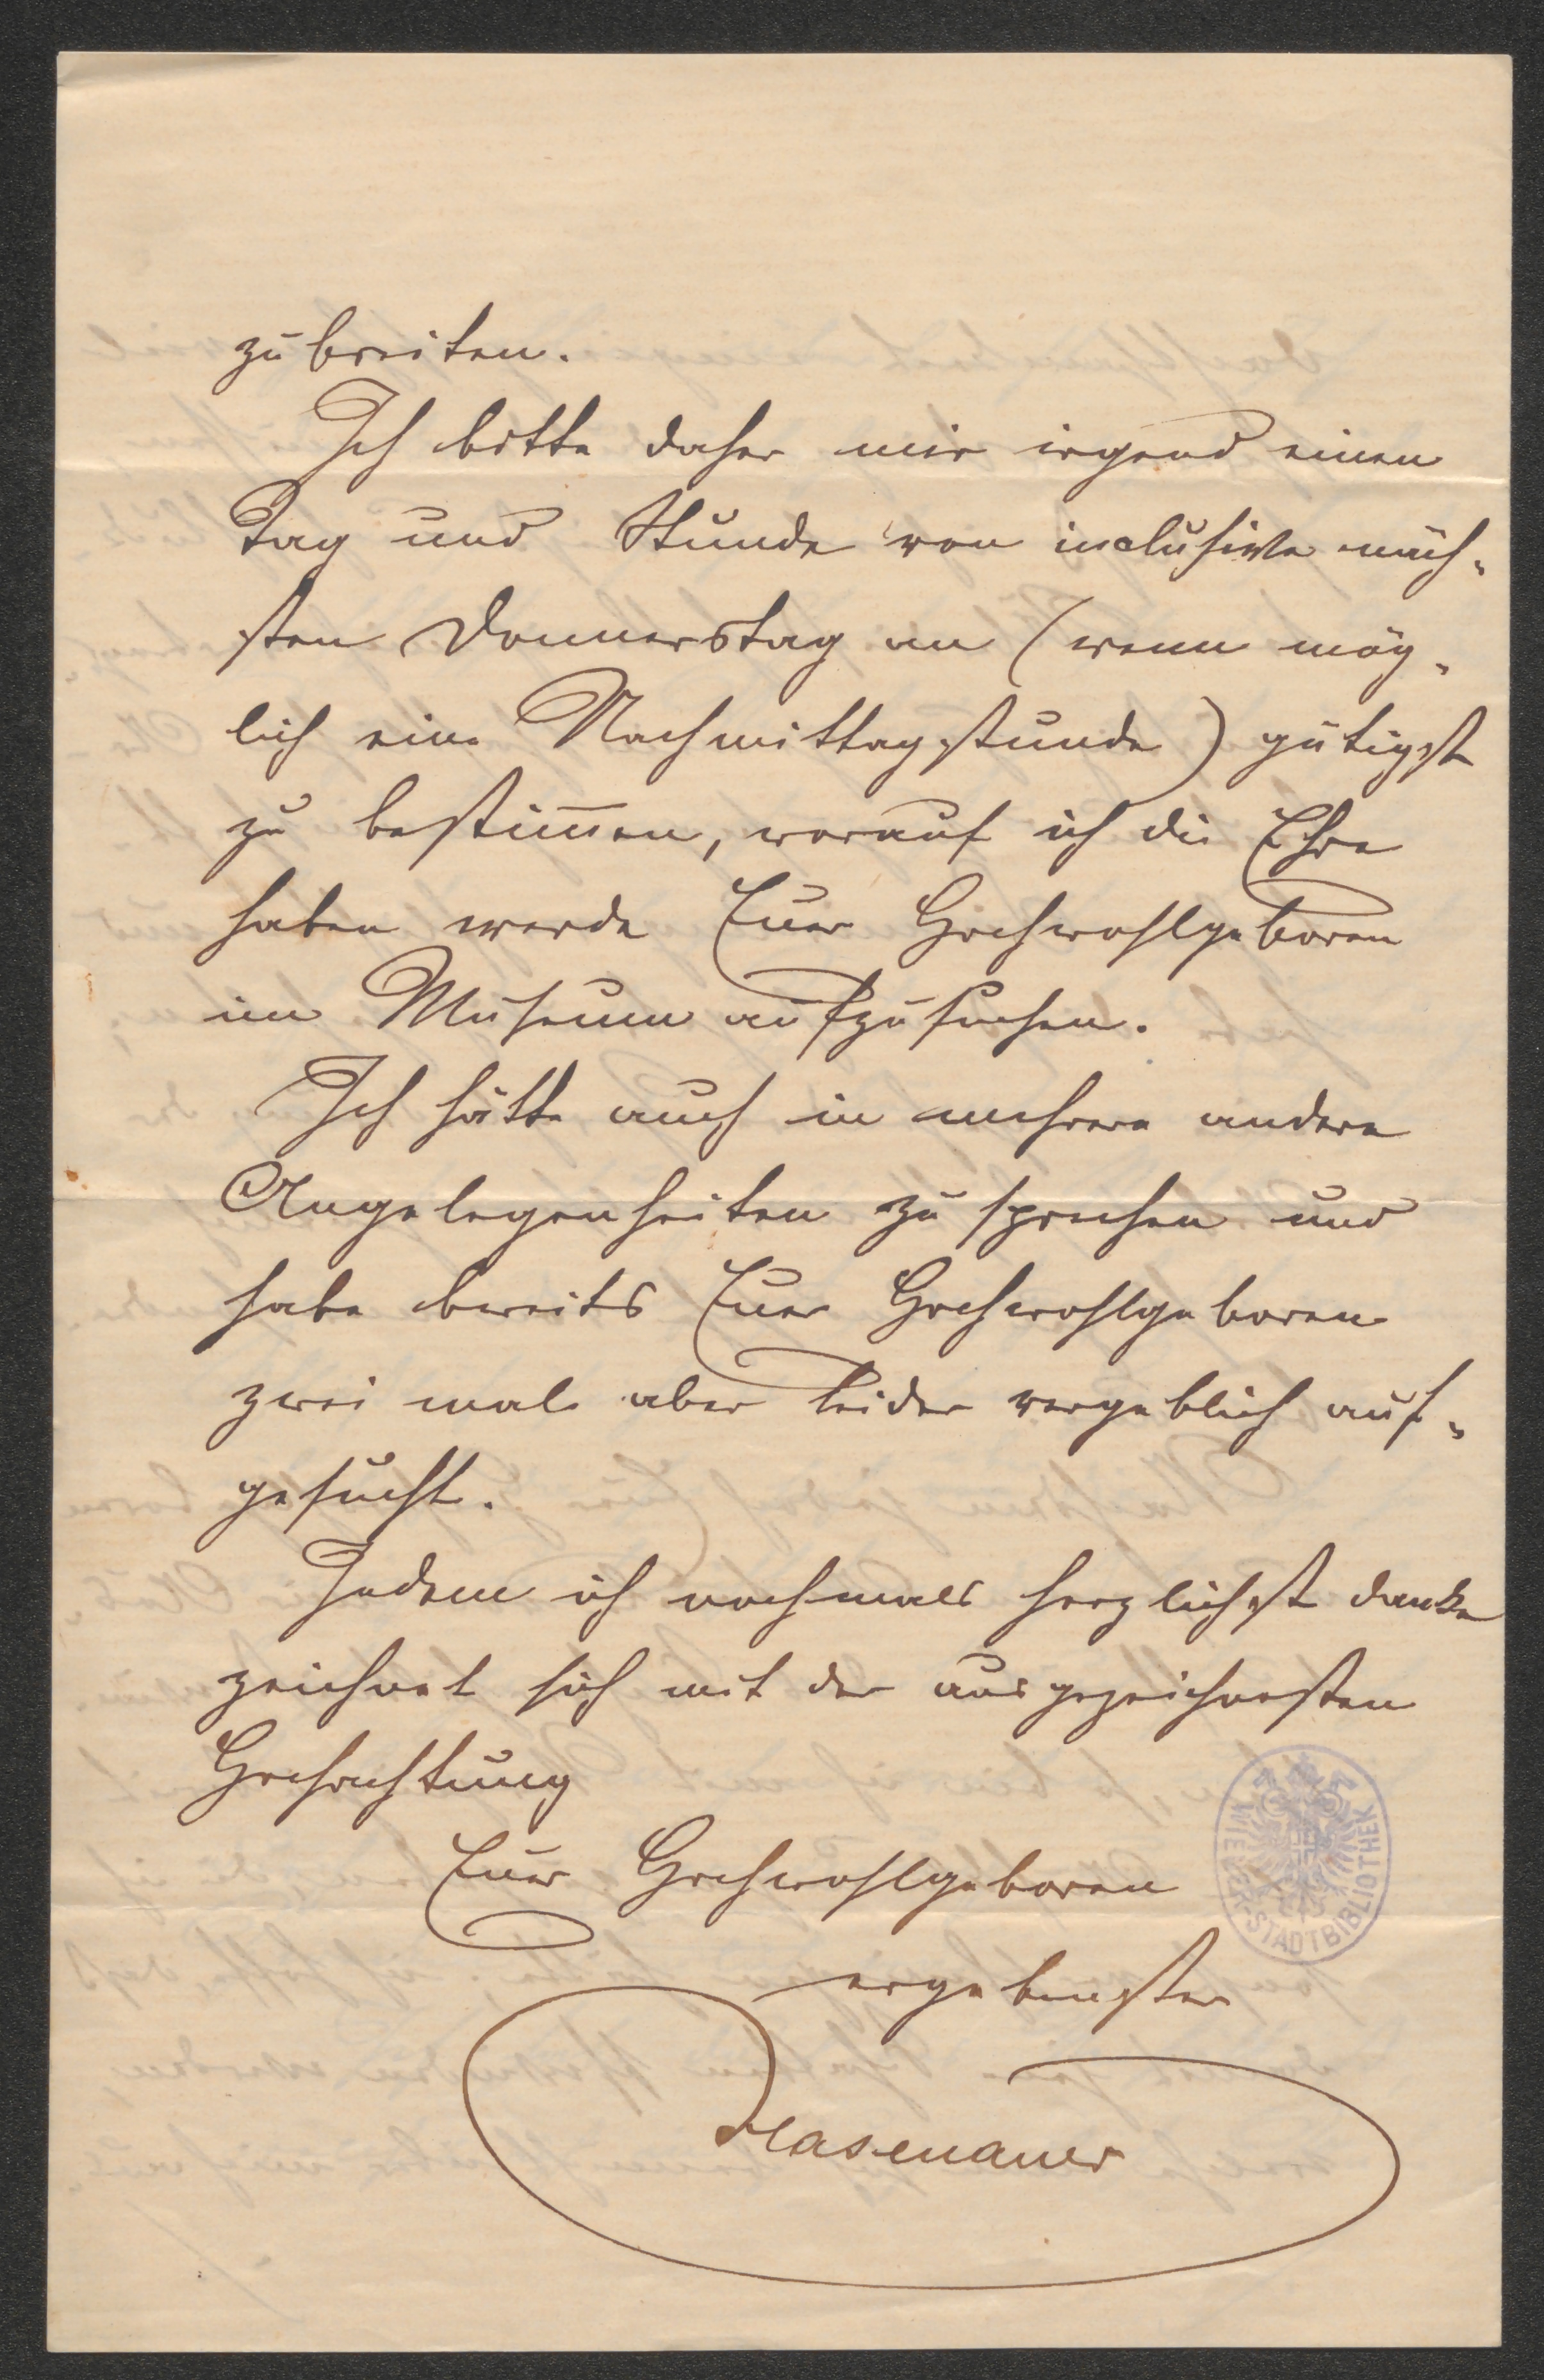 zu breiten.
Ich bitte daher mir irgend einen
Tag und Stunde von inclusive näch-
sten Donnerstag an (wenn mög-
lich eine Nachmittagstunde) gütigst
zu bestim̅en, worauf ich die Ehre
haben werde Euer Hochwohlgeboren
im Museum aufzusuchen.
Ich hätte auch in mehrere andere
Angelegenheiten zu sprechen und
habe bereits Euer Hochwohlgeboren
zwei mal aber leider vergeblich auf-
gesucht.
Indem ich nochmals herzlichst danke
zeichnet sich mit der ausgezeichnesten
Hochachtung
Euer Hochwohlgeboren
ergebenster
Hasenauer
WIENER STADTBIBLIOTHEK